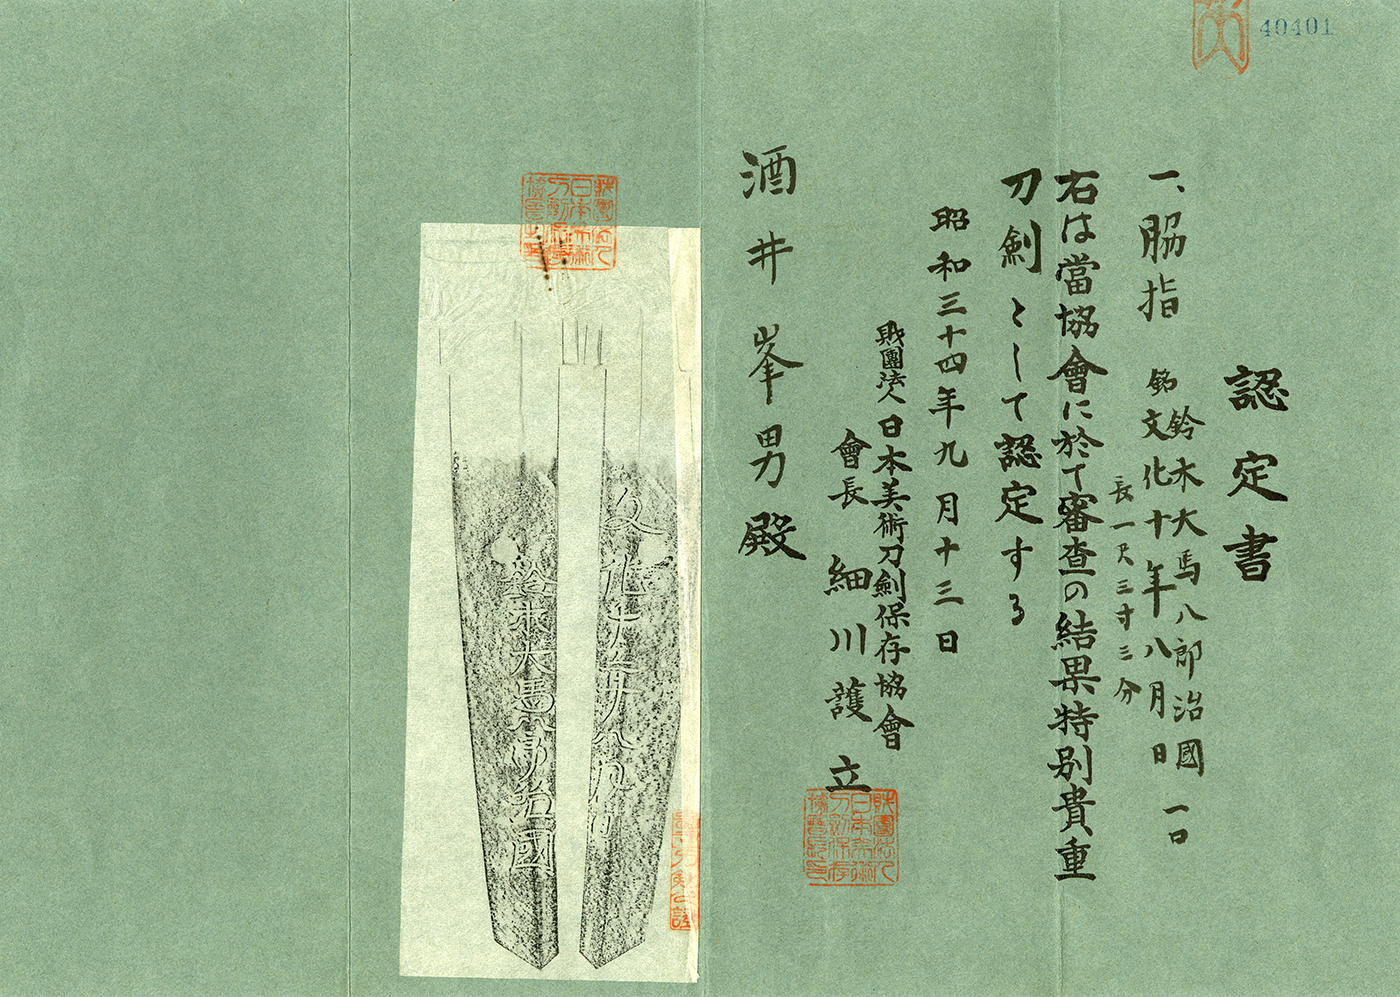 40401
認定書
一、脇指 銘 鈴木大馬八郎治國 一口
文化十年八月日
長一尺三寸三分
右は當協會に於て審査の結果特別貴重
刀劍として認定する
昭和三十四年九月十三日
財團法人日本美術刀劍保存協會
會長 細川護立
酒井峯男殿
文化十年八月日
鈴木大馬八郎治國